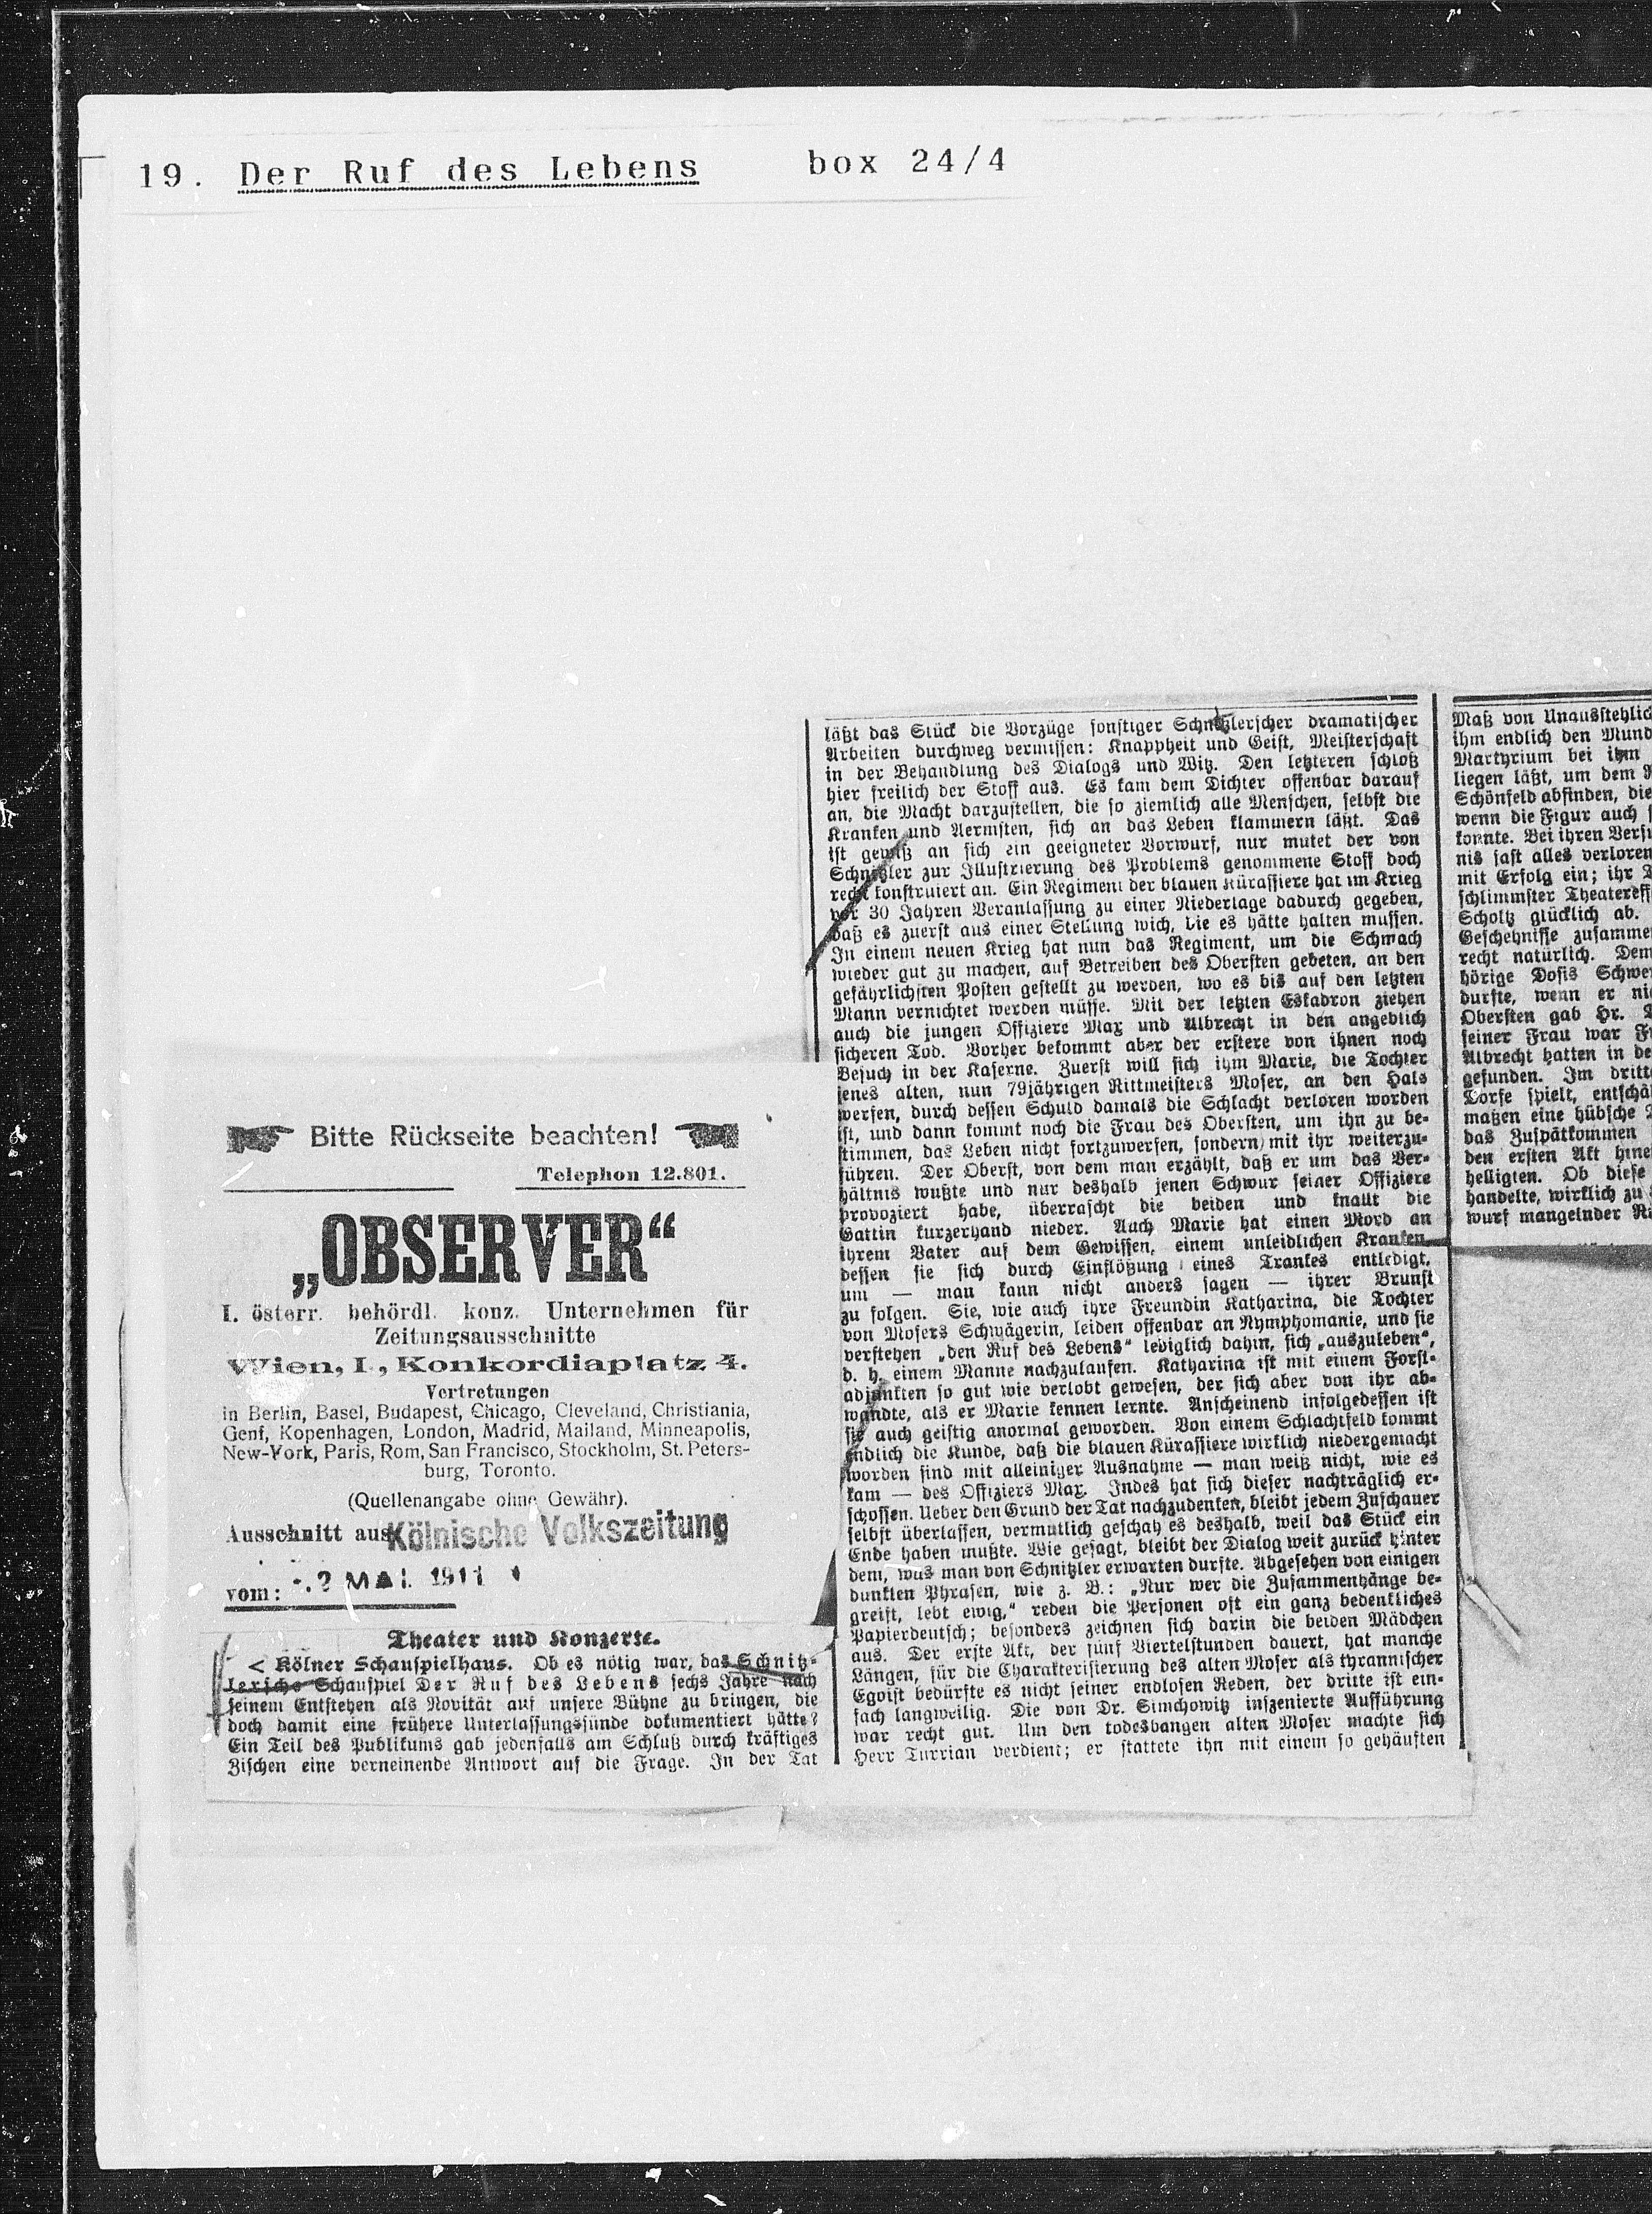 19. Der Ruf des Lebens box 24/4
Bitte Rückseite beachten!
Telephon 12.801.
„OBSERVER“
I. österr. behördl. konz. Unternehmen für
Zeitungsausschnitte
Wien, I., Konkordiaplatz 4.
Vertretungen
in Berlin, Basel, Budapest, Chicago, Cleveland, Christiania,
Genf, Kopenhagen, London, Madrid, Mailand, Minneapolis,
New-York, Paris, Rom, San Francisco, Stockholm, St. Peters-
burg, Toronto.
(Quellenangabe ohne Gewähr).
Ausschnitt aus: Kölnische Volkszeitung
vom: 2 MAI 1911
Theater und Konzerte.
< Kölner Schauspielhaus. Ob es nötig war, das Schnitz-
lersche Schauspiel Der Ruf des Lebens sechs Jahre nach
seinem Entstehen als Novität auf unsere Bühne zu bringen, die
doch damit eine frühere Unterlassungssünde dokumentiert hätte?
Ein Teil des Publikums gab jedenfalls am Schluß durch kräftiges
Zischen eine verneinende Antwort auf die Frage. In der Tat
läßt das Stück die Vorzüge sonstiger Schnitzlerscher dramatischer
Arbeiten durchweg vermissen: Knappheit und Geist, Meisterschaft
in der Behandlung des Dialogs und Witz. Den letzteren schloß
hier freilich der Stoff aus. Es kam dem Dichter offenbar darauf
an, die Macht darzustellen, die so ziemlich alle Menschen, selbst die
Kranken und Aermsten, sich an das Leben klammern läßt. Das
ist gewiß an sich ein geeigneter Vorwurf, nur mutet der von
Schnitzler zur Illustrierung des Problems genommene Stoff doch
recht konstruiert an. Ein Regiment der blauen Kürassiere hat im Krieg
vor 30 Jahren Veranlassung zu einer Niederlage dadurch gegeben,
daß es zuerst aus einer Stellung wich, die es hätte halten müssen.
In einem neuen Krieg hat nun das Regiment, um die Schmach
wieder gut zu machen, auf Betreiben des Obersten gebeten, an den
gefährlichsten Posten gestellt zu werden, wo es bis auf den letzten
Mann vernichtet werden müsse. Mit der letzten Eskadron ziehen
auch die jungen Offiziere Max und Albrecht in den angeblich
sicheren Tod. Vorher bekommt aber der erstere von ihnen noch
Besuch in der Kaserne. Zuerst will sich ihm Marie, die Tochter
jenes alten, nun 79jährigen Rittmeisters Moser, an den Hals
werfen, durch dessen Schuld damals die Schlacht verloren worden
ist, und dann kommt noch die Frau des Obersten, um ihn zu be-
stimmen, das Leben nicht fortzuwerfen, sondern mit ihr weiterzu-
führen. Der Oberst, von dem man erzählt, daß er um das Ver-
hältnis wußte und nur deshalb jenen Schwur seiner Offiziere
provoziert habe, überrascht die beiden und knallt die
Gattin kurzerhand nieder. Auch Marie hat einen Mord an
ihrem Vater auf dem Gewissen, einem unleidlichen Kranken
dessen sie sich durch Einflößung eines Trankes entledigt,
um — man kann nicht anders sagen — ihrer Brunst
zu folgen. Sie, wie auch ihre Freundin Katharina, die Tochter
von Mosers Schwägerin, leiden offenbar an Nymphomanie, und sie
verstehen „den Ruf des Lebens“ lediglich dahin, sich „auszuleben“,
d. h. einem Manne nachzulaufen. Katharina ist mit einem Forst-
adjunkten so gut wie verlobt gewesen, der sich aber von ihr ab-
wandte, als er Marie kennen lernte. Anscheinend infolgedessen ist
sie auch geistig anormal geworden. Von einem Schlachtfeld kommt
endlich die Kunde, daß die blauen Kürassiere wirklich niedergemacht
worden sind mit alleiniger Ausnahme — man weiß nicht, wie es
kam — des Offiziers Max. Indes hat sich dieser nachträglich er-
schossen. Ueber den Grund der Tat nachzudenken, bleibt jedem Zuschauer
selbst überlassen, vermutlich geschah es deshalb, weil das Stück ein
Ende haben mußte. Wie gesagt, bleibt der Dialog weit zurück hinter
dem, was man von Schnitzler erwarten durfte. Abgesehen von einigen
dunklen Phrasen, wie z. B.: „Nur wer die Zusammenhänge be-
greift, lebt ewig,“ reden die Personen oft ein ganz bedenkliches
Papierdeutsch; besonders zeichnen sich darin die beiden Mädchen
aus. Der erste Akt, der fünf Viertelstunden dauert, hat manche
Längen, für die Charakterisierung des alten Moser als tyrannischer
Egoist bedürfte es nicht seiner endlosen Reden, der dritte ist ein-
fach langweilig. Die von Dr. Simchowitz inszenierte Aufführung
war recht gut. Um den todesbangen alten Moser machte sich
Herr Turrian verdient; er stattete ihn mit einem so gehäuften
Maß von Unausstehlic
ihm endlich den Mund
Martyrium bei ihm
liegen läßt, um dem R
Schönfeld abfinden, die
wenn die Figur auch
konnte. Bei ihren Versu
nis fast alles verloren
mit Erfolg ein; ihr
schlimmster Theatereff
Scholtz glücklich ab.
Geschehnisse zusamme
recht natürlich. Dem
hörige Dosis Schwe
durfte, wenn er ni
Obersten gab Hr.
seiner Frau war F
Albrecht hatten in de
gefunden. Im dritt
Dorfe spielt, entschä
maßen eine hübsche
das Zuspätkommen
den ersten Akt hine
helligten. Ob diese
handelte, wirklich zu
wurf mangelnder Rü